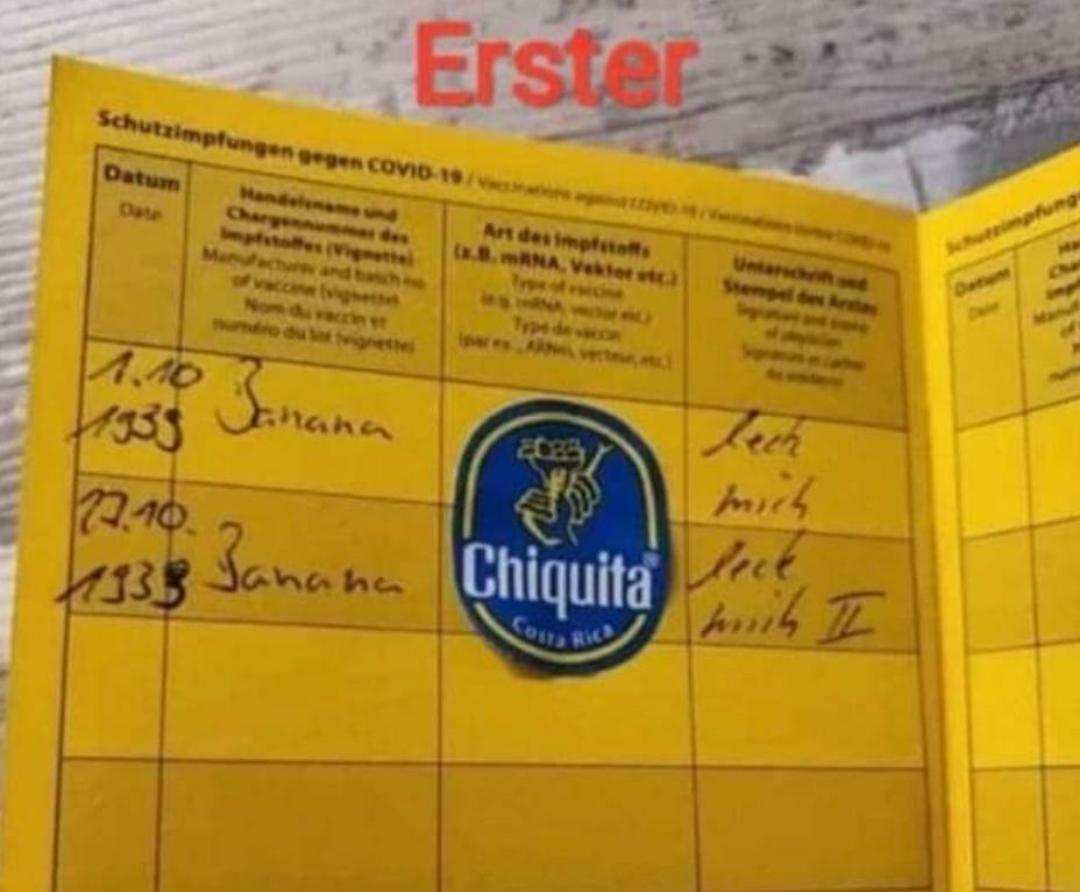 Erster
Schutzimpfungen gegen COVID-19 / Vaccinations against COVID-19 / Vaccinations contre COVID-19
Datum
Date
Handelsname und
Chargennummer des
Impfstoffes (Vignette)
Manufacturer and batch no
of vaccine (vignette)
Nom du vaccin et
numéro du lot (vignette)
Art des Impfstoffs
(z.B. mRNA, Vektor etc.)
Type of vaccine
(e.g. mRNA, vector etc.)
Type de vaccin
(par ex., ARNm, vecteur, etc.)
Unterschrift und
Stempel des Arztes
Signature and stamp
of physician
Signature et cachet
du médecin
1.10
1939
Banana
leck
mich
17.10.
1939
Banana
leck
mich II
Chiquita®
Costa Rica
Schutzimpfung
Datum
Date